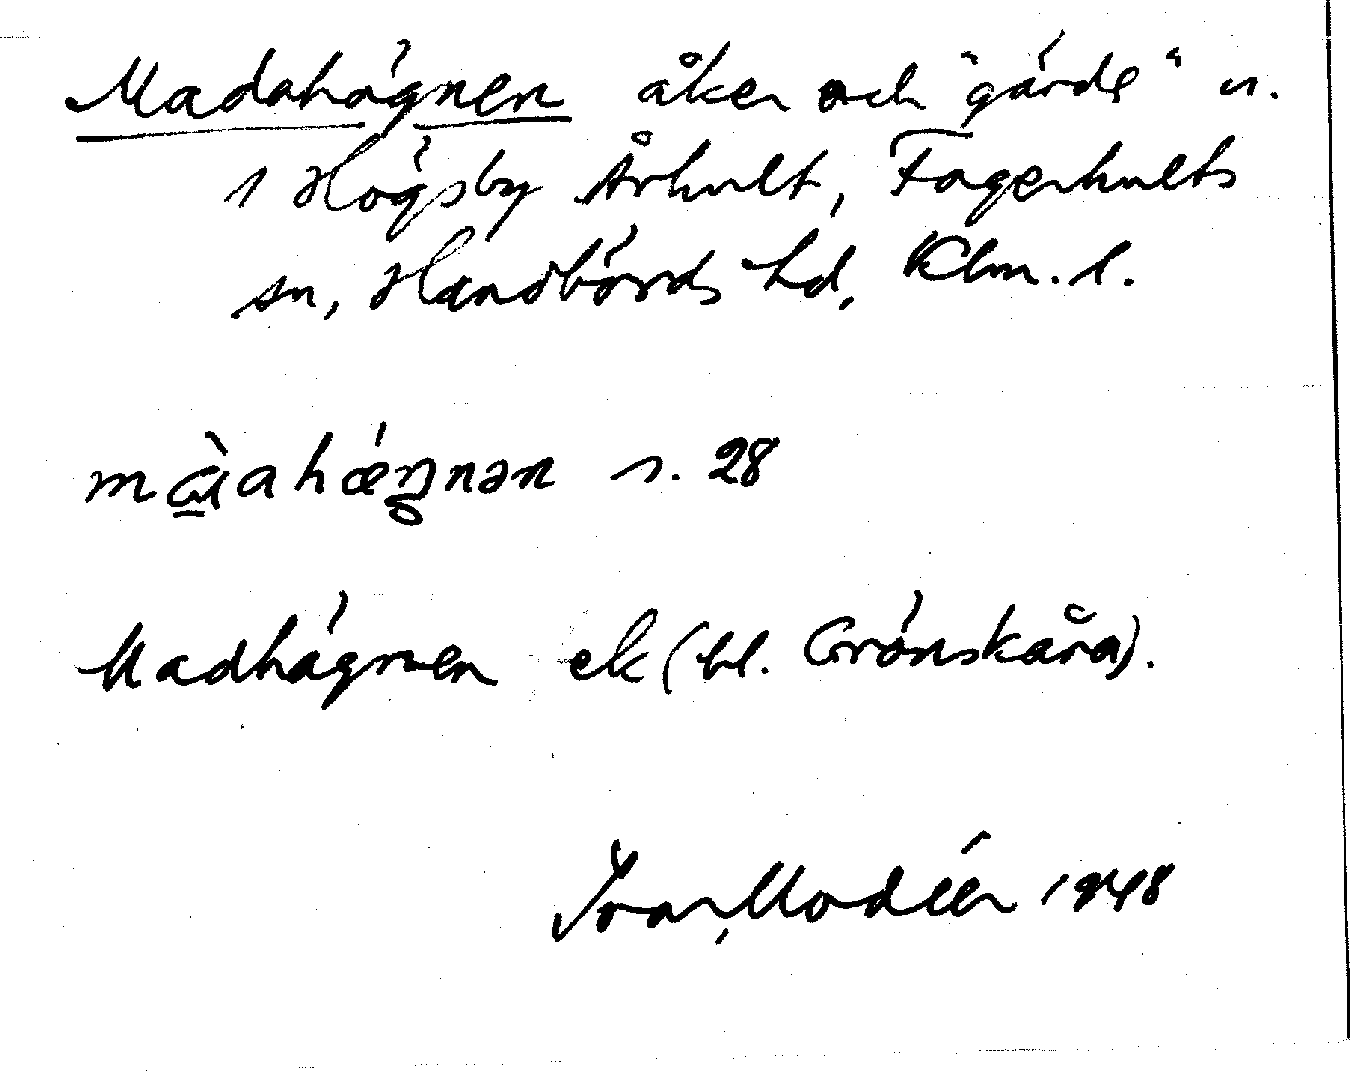 Madahägnen åker och "gärde" n.
i Högsby Århult, Fagerhults
sn, Handbörds hd, Klm. l.
s. 28
Madhägnen ek (bl. Grönskåra).
Ivar Modéer 1948